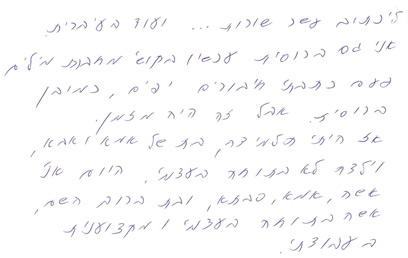 לכתוב עשר שורות... ועוד בעברית.
אני גם ברוסית עכשיו בקושי מחברת מילים
פעם כתבתי חיבורים יפים, כמובן
ברוסית. אבל זה היה מזמן.
אז הייתי תלמידה, בת של אמא ואבא,
וילדה לא בטוחה בעצמי. היום אני
אשה, אמא, סבתא, ובת ברוב השם,
אשה בטוחה בעצמי ומקצוענית
בעבודתי.